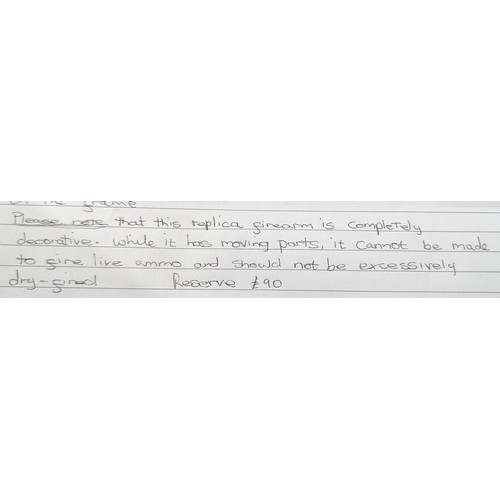 frame
Please note that this replica firearm is completely
decorative. While it has moving parts, it cannot be made
to fire live ammo and should not be excessively
dry-fired Reserve £90